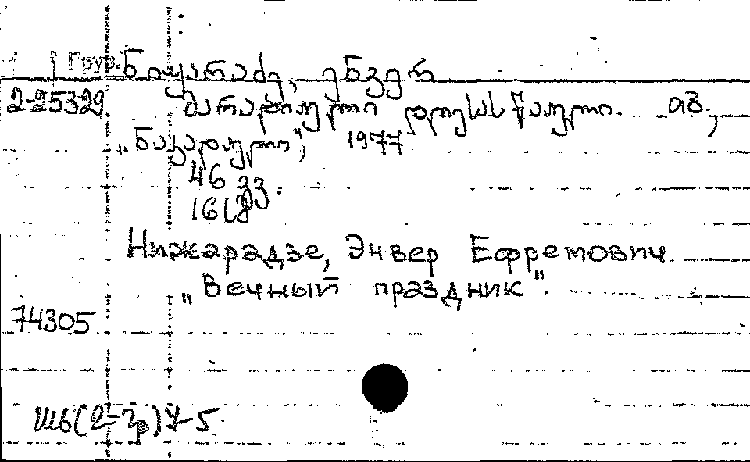 Груз. ნიჟარაძე, ენვერ
2-25329. მარადიული დღესასწაული. თბ.,
„ნაკადული", 1977
46 გვ.
16 სმ
Нижарадзе, Энвер Ефремович.
„Вечный праздник".
74305
Ш6(2-Гр)7-5